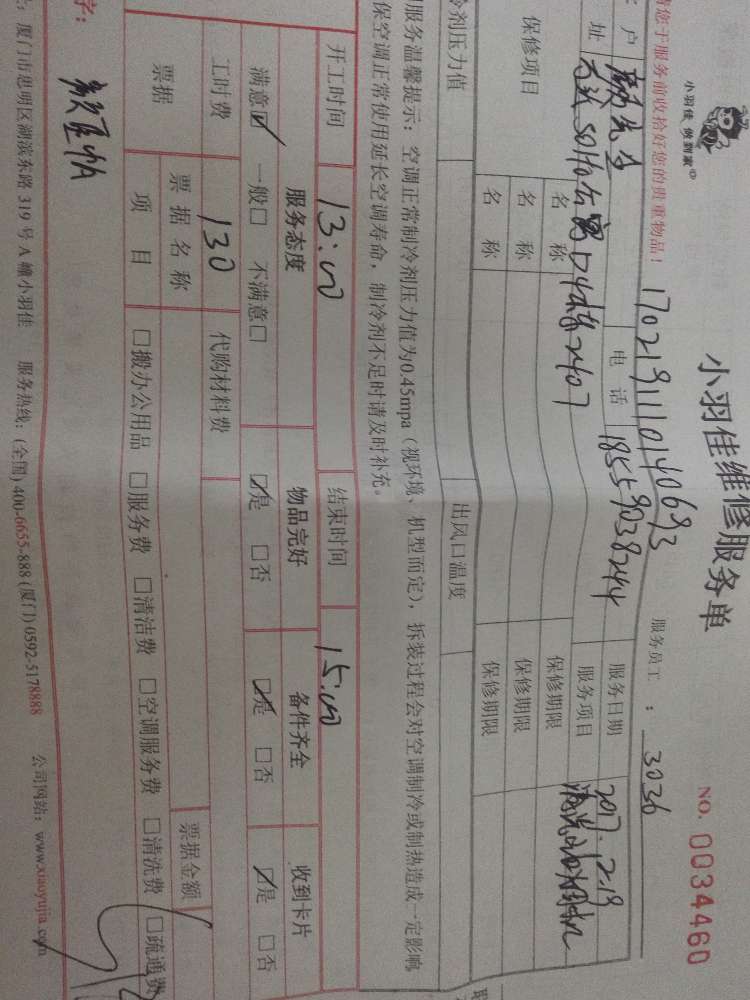 小羽佳 做到家
小羽佳维修服务单
NO. 0034460
请您于服务前收拾好您的贵重物品！
服务员工 ： 3036
户
电 话 18559038244
服务日期 2017.12.19
址
服务项目
保修项目
名 称
保修期限
名 称
保修期限
名 称
保修期限
冷剂压力值
出风口温度
服务温馨提示：空调正常制冷剂压力值为0.45mpa（视环境、机型而定），拆装过程会对空调制冷或制热造成一定影响
保空调正常使用延长空调寿命，制冷剂不足时请及时补充。
开工时间 13:00 结束时间 15:00
服务态度 物品完好 备件齐全 收到卡片
满意☑ 一般□ 不满意□ ☑是 □否 ☑是 □否 ☑是 □否
工时费 130 代购材料费
票据 票 据 名 称 票据金额
项 目 □搬办公用品 □服务费 □清洁费 □空调服务费 □清洗费 □疏通费
字：
厦门市思明区湖滨东路 319 号 A 幢小羽佳 服务热线：(全国) 400-6655-888 (厦门) 0592-5178888 公司网站：www.xiaoyujia.com